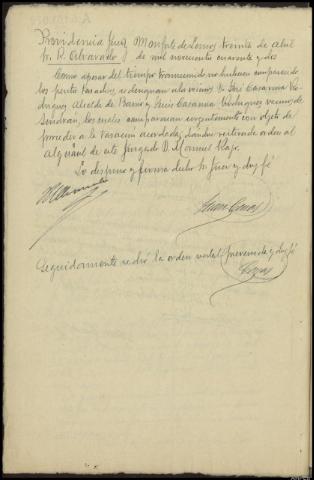 Providencia Juez Monforte de Lemos treinta de abril
Sr. R. Alvarado de mil novecientos cuarenta y dos
Como apesar del tiempo transcurrido no hubiesen comparecido
los peritos tasadores se designan a los vecinos D. José Casanova
Alcalde de Barrio y Luis Casanova Rodriguez vecinos de
Sendrán, los cuales compareceran urgentemente con objeto de
proceder a la tasación acordada, dandose verbal orden al
alguacil de este Juzgado D. Manuel
Lo dispuso y firma dicho Sr Juez y doy fé
Seguidamente se dió la orden verbal prevenida y doy fé